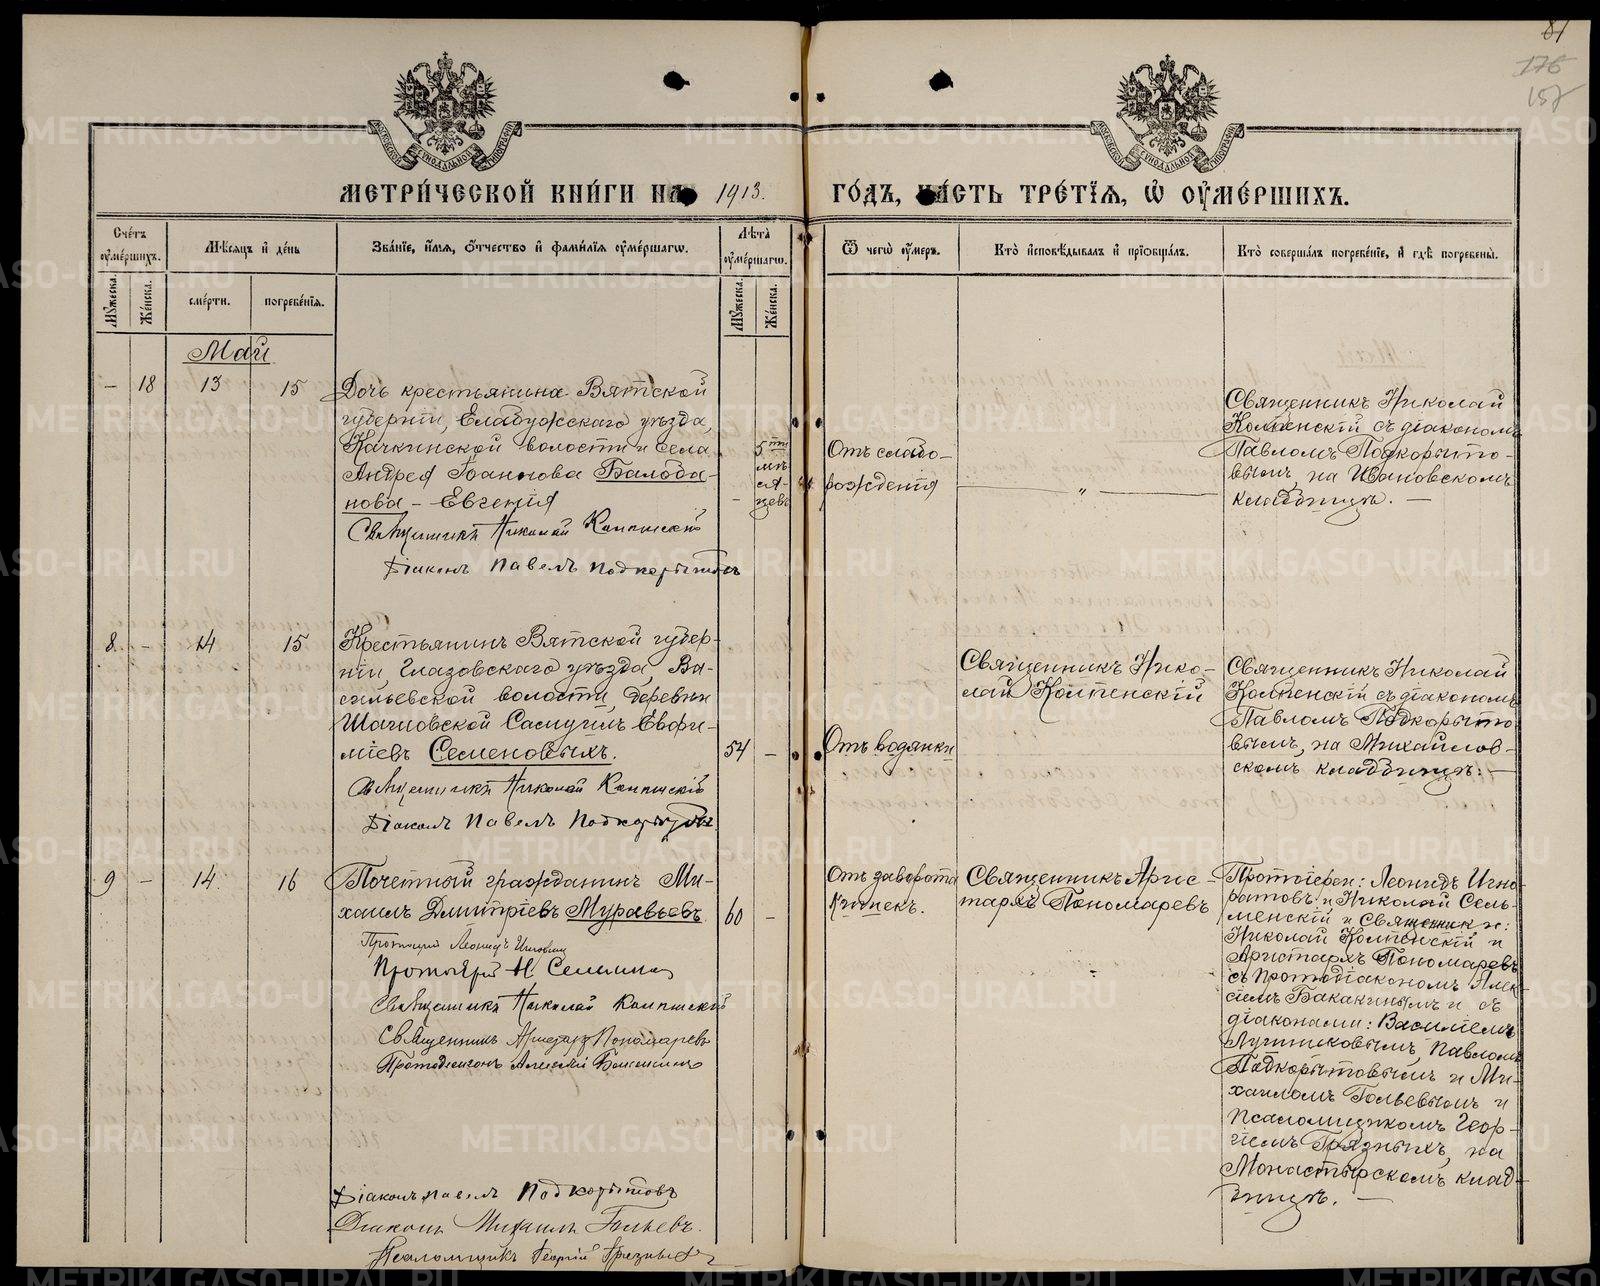 81
176
157
МОСКОВСКОЙ СѴНОДАЛЬНОЙ ТИПОГРАФІИ
МОСКОВСКОЙ СѴНОДАЛЬНОЙ ТИПОГРАФІИ
МЕТРИ́ЧЕСКОЙ КНИ́ГИ НА 1913.
ГО́ДЪ, ЧА́СТЬ ТРЕ́ТЇѦ, Ѡ҆ ОУ҆МЕ́РШИХЪ.
Сче́тъ оу҆ме́ршихъ.
Мꙋ́жеска.
Же́нска.
Мѣ́сяцъ и҆ де́нь
сме́рти.
погребе́нїѧ.
Зва́нїе, и҆́мѧ, ѻ҆́тчество и҆ фами́лїѧ оу҆ме́ршагѡ.
Лѣ́та оу҆ме́ршагѡ.
Мꙋ́жеска.
Же́нска.
Ѿ чегѡ̀ оу҆́меръ.
Кто̀ и҆сповѣ́дывалъ и҆ прїѡбща́лъ.
Кто̀ соверша́лъ погребе́нїе, и҆ гдѣ̀ погребены̀.
Май
– 18 13 15
Дочь крестьянина Вятской
губерніи, Елабужскаго уѣзда,
Качкинской волости и села
Андрея Іоаннова Балоба-
нова – Евгенія
Священникъ Николай
Діаконъ Павелъ Подкорытовъ
–
5ти
мѣ
ся-
цевъ
Отъ слабо-
рожденія
"
Священникъ Николай
съ діакономъ
Павломъ Подкорыто-
вымъ, на Ивановскомъ
кладбищѣ. –
8 – 14 15
Крестьянинъ Вятской губер-
ніи, Глазовскаго уѣзда, Ва-
сильевской волости, деревни
Самуилъ Евфи-
міевъ Семеновыхъ.
Священникъ Николай
Діаконъ Павелъ Подкорытовъ
54 –
Отъ водянки
Священникъ Нико-
лай
Священникъ Николай
съ діакономъ
Павломъ Подкорыто-
вымъ, на Михайлов-
скомъ кладбищѣ. –
9 – 14. 16
Почетный гражданинъ Ми-
хаилъ Дмитріевъ Муравьевъ.
Протоіерей Леонидъ Игноратовъ
Протоіерей Н. Сельменскій
Священникъ Николай
Священникъ Аристархъ Пономаревъ
Протодіаконъ Алексій
Діаконъ Павелъ Подкорытовъ
Діаконъ Михаилъ Гольевъ.
Псаломщикъ Георгій Грязныхъ
60 –
Отъ заворота
кишекъ.
Священникъ Арис-
тархъ Пономаревъ
Протоіереи: Леонидъ Игно-
ратовъ и Николай Сель-
менскій и Священники:
Николай и
Аристархъ Пономаревъ
съ протодіакономъ Алек-
сіемъ и съ
діаконами: Василіемъ
Лучниковымъ, Павломъ
Подкорытовымъ и Ми-
хаиломъ Гольевымъ и
псаломщикомъ Геор-
гіемъ Грязныхъ, на
Монастырскомъ клад-
бищѣ. –
METRIKI.GASO-URAL.RU